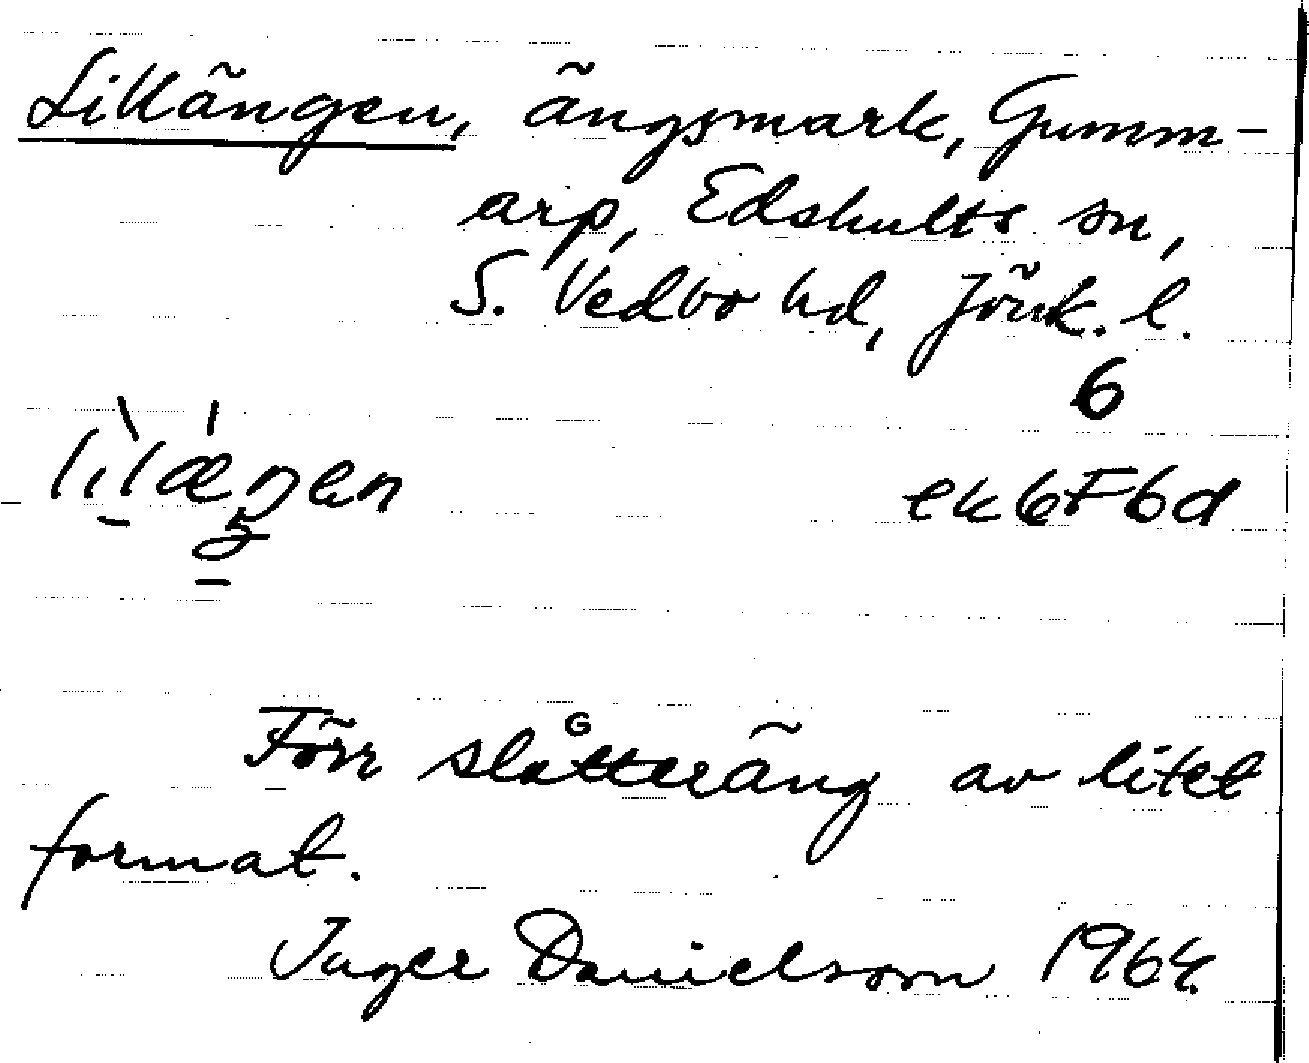 Lillängen, ängsmark, Gumm-
arp, Edshults sn,
S. Vedbo hd, Jönk. l.
6
ek 6F6d
Förr slåtteräng av litet
format.
Inger Danielsson 1964.